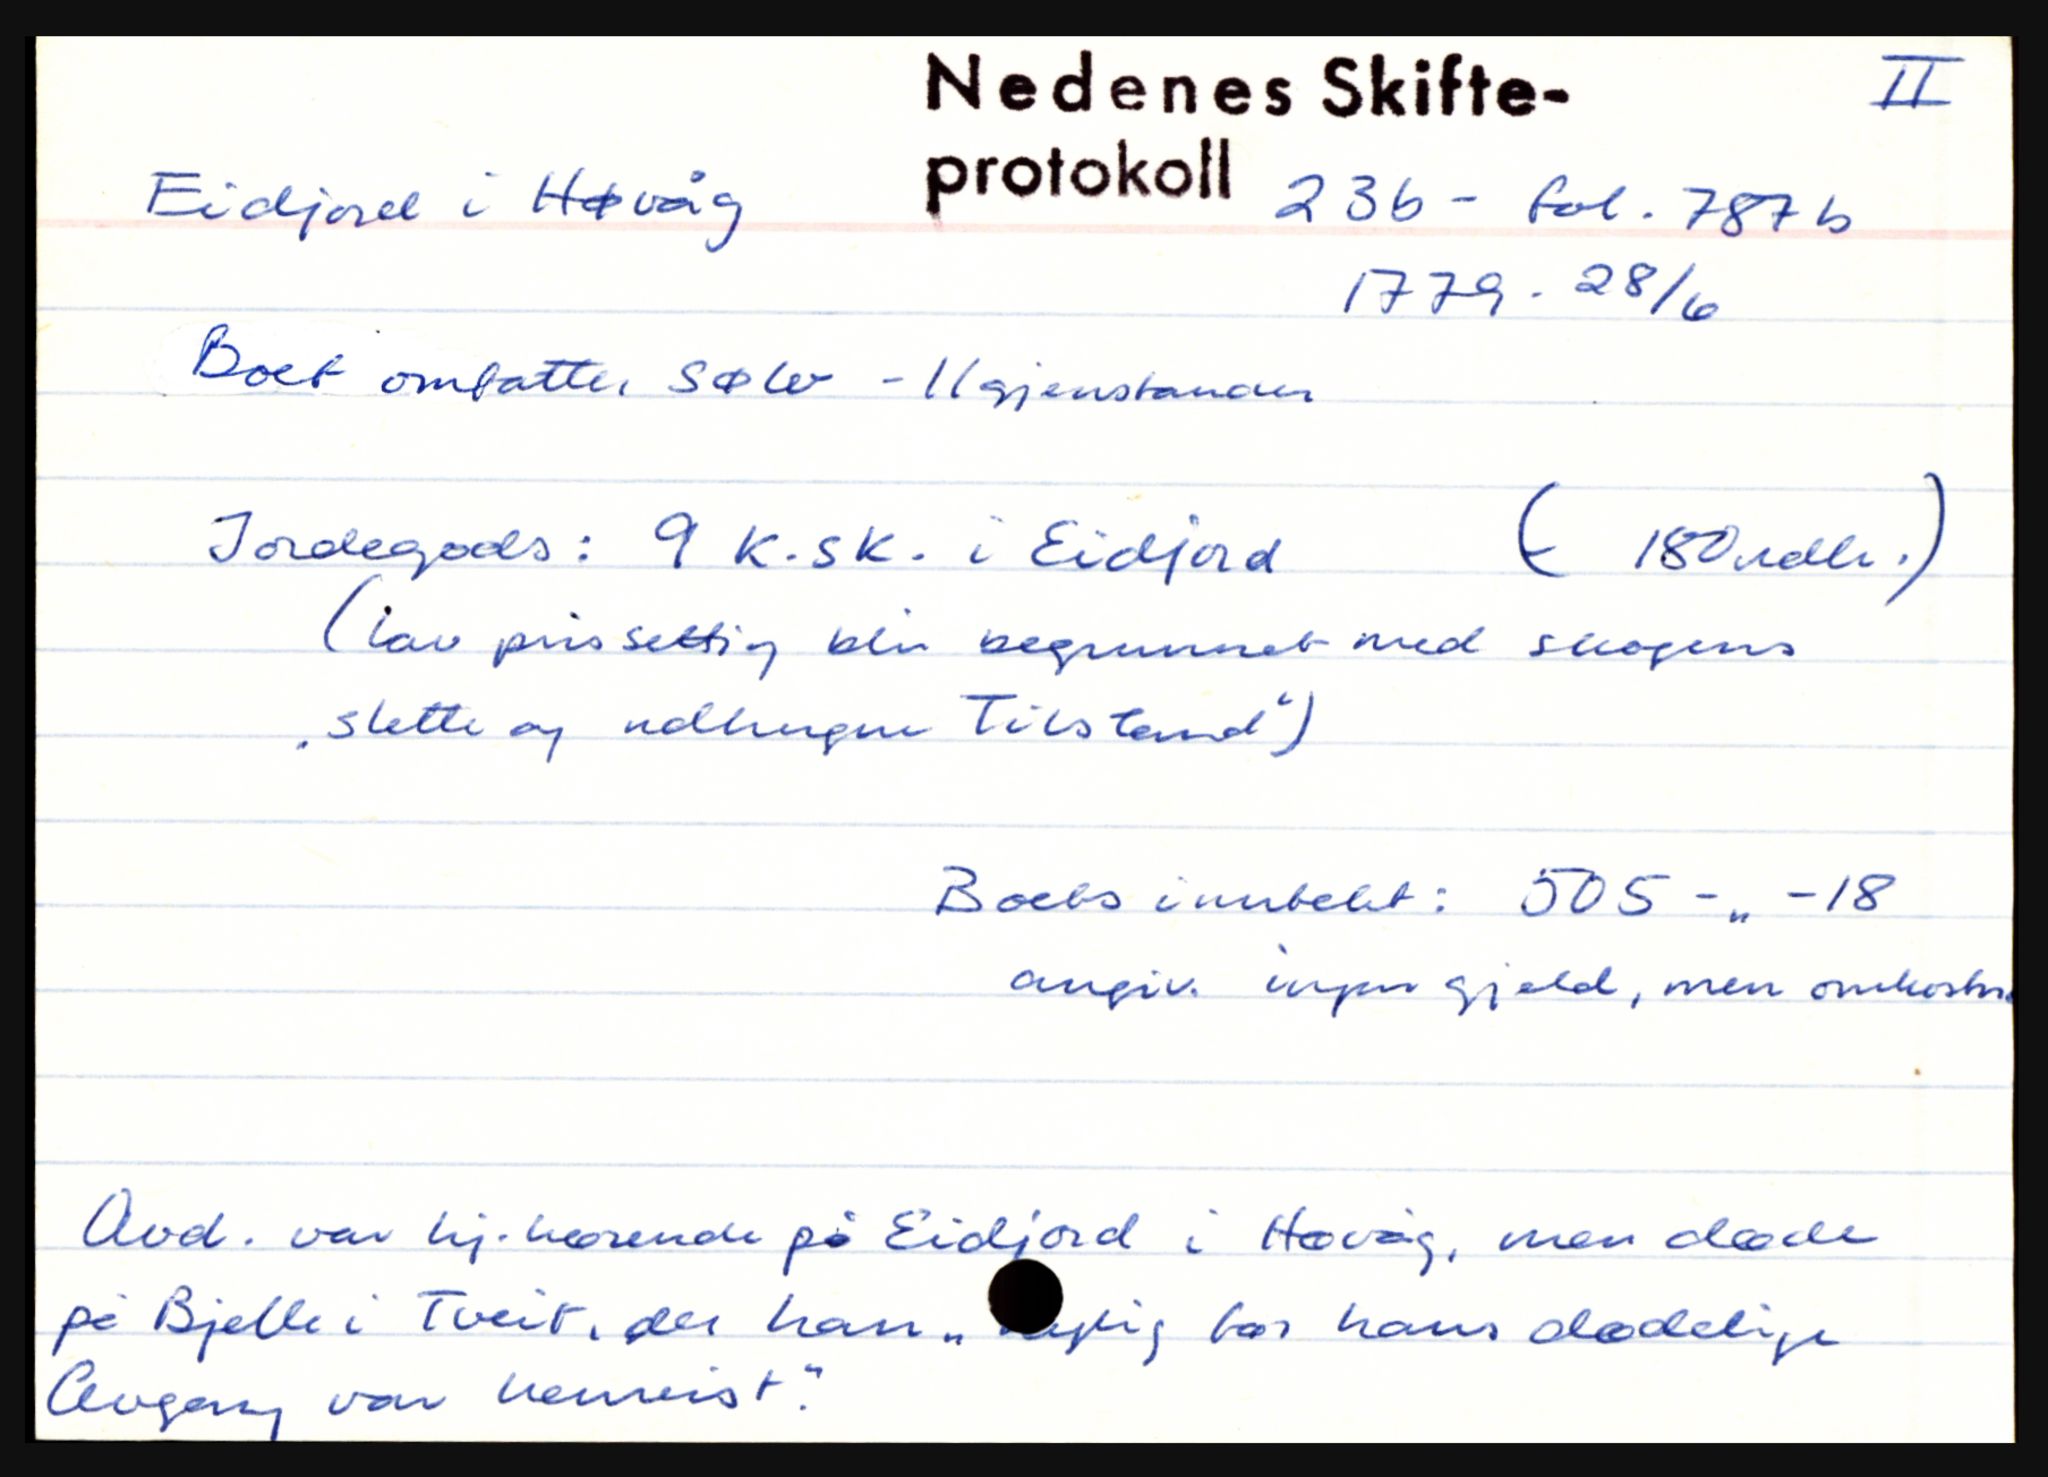 Nedenes Skifte- II
protokoll
Eidjord i Høvåg 23b - fol. 787b
1779. 28/6
Boet omfatter sølv - 11 gjenstander
Jordegods: 9 k.sk. i Eidjord ( 180 rdlr.)
(lav prissetting blir begrunnet med skogens
"slette og udhugne Tilstand")
Boets inntekt: 505 - " - 18
angiv. ingen gjeld, men omkostn.
Avd. var hj.hørende på Eidjord i Høvåg, men døde
på Bjelle i Tveit, der han " for hans dødelige
Avgang var henreist".